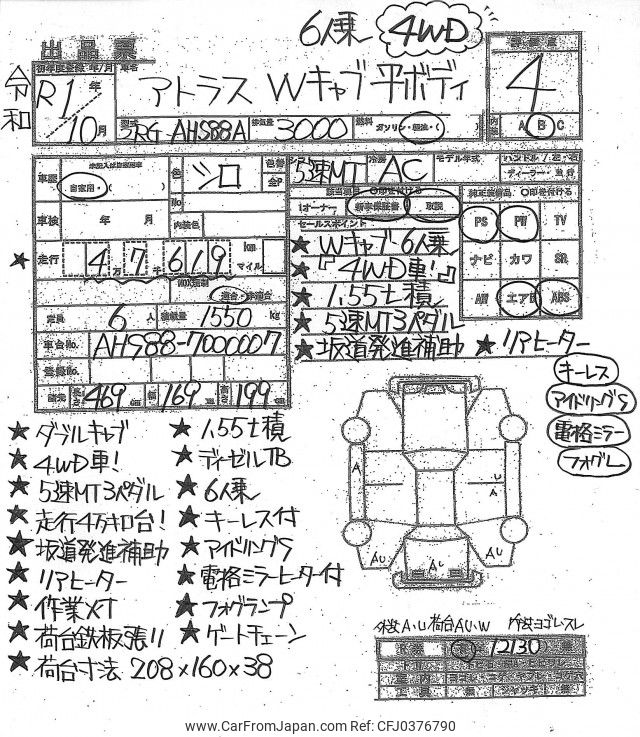 6人乗 4WD
出品票
令和
初年度登録 年/月 車名 評価点
R1年 アトラス Wキャブ 平ボディ 4
10月
型式 TRG AHS88A 排気量 3000 燃料 ガソリン・軽油・( ) 内装 A B C
車歴 自家用・( ) 色 シロ
5速MT 冷房 AC モデル年式 ハンドル/右・左
ディーラー・並行
車検 年 月 No 内装色
1オーナー 新車保証書 取説
純正装備品、○印を付ける
セールスポイント
★ 走行 4万7千619 km マイル
PS PW TV
ナビ カワ SR
AW エアB ABS
★ Wキャブ 6人乗
★『4WD車!』
★ 1,55t積
★ 5速MT3ペダル
★ 坂道発進補助 ★ リアヒーター
NOX規制 適合・非適合
定員 6人 積載量 1550 kg
車台No. AHS88-7000007
登録No.
諸元 長さ 469cm 幅 169cm 高さ 199cm
キーレス
アイドリングS
電格ミラー
フォグL
★ ダブルキャブ ★ 1,55t積
★ 4WD車! ★ ディーゼルTB
★ 5速MT3ペダル ★ 6人乗
★ 走行4万キロ台! ★ キーレス付
★ 坂道発進補助 ★ アイドリングS
★ リアヒーター ★ 電格ミラーヒーター付
★ 作業メモ ★ フォグランプ
★ 荷台鉄板張リ ★ ゲートチェーン
★ 荷台寸法 208×160×38
A U A A AU AU AU
外装A・U 荷台AU・W 内装ヨゴレスレ
12130
www.CarFromJapan.com Ref: CFJ0376790